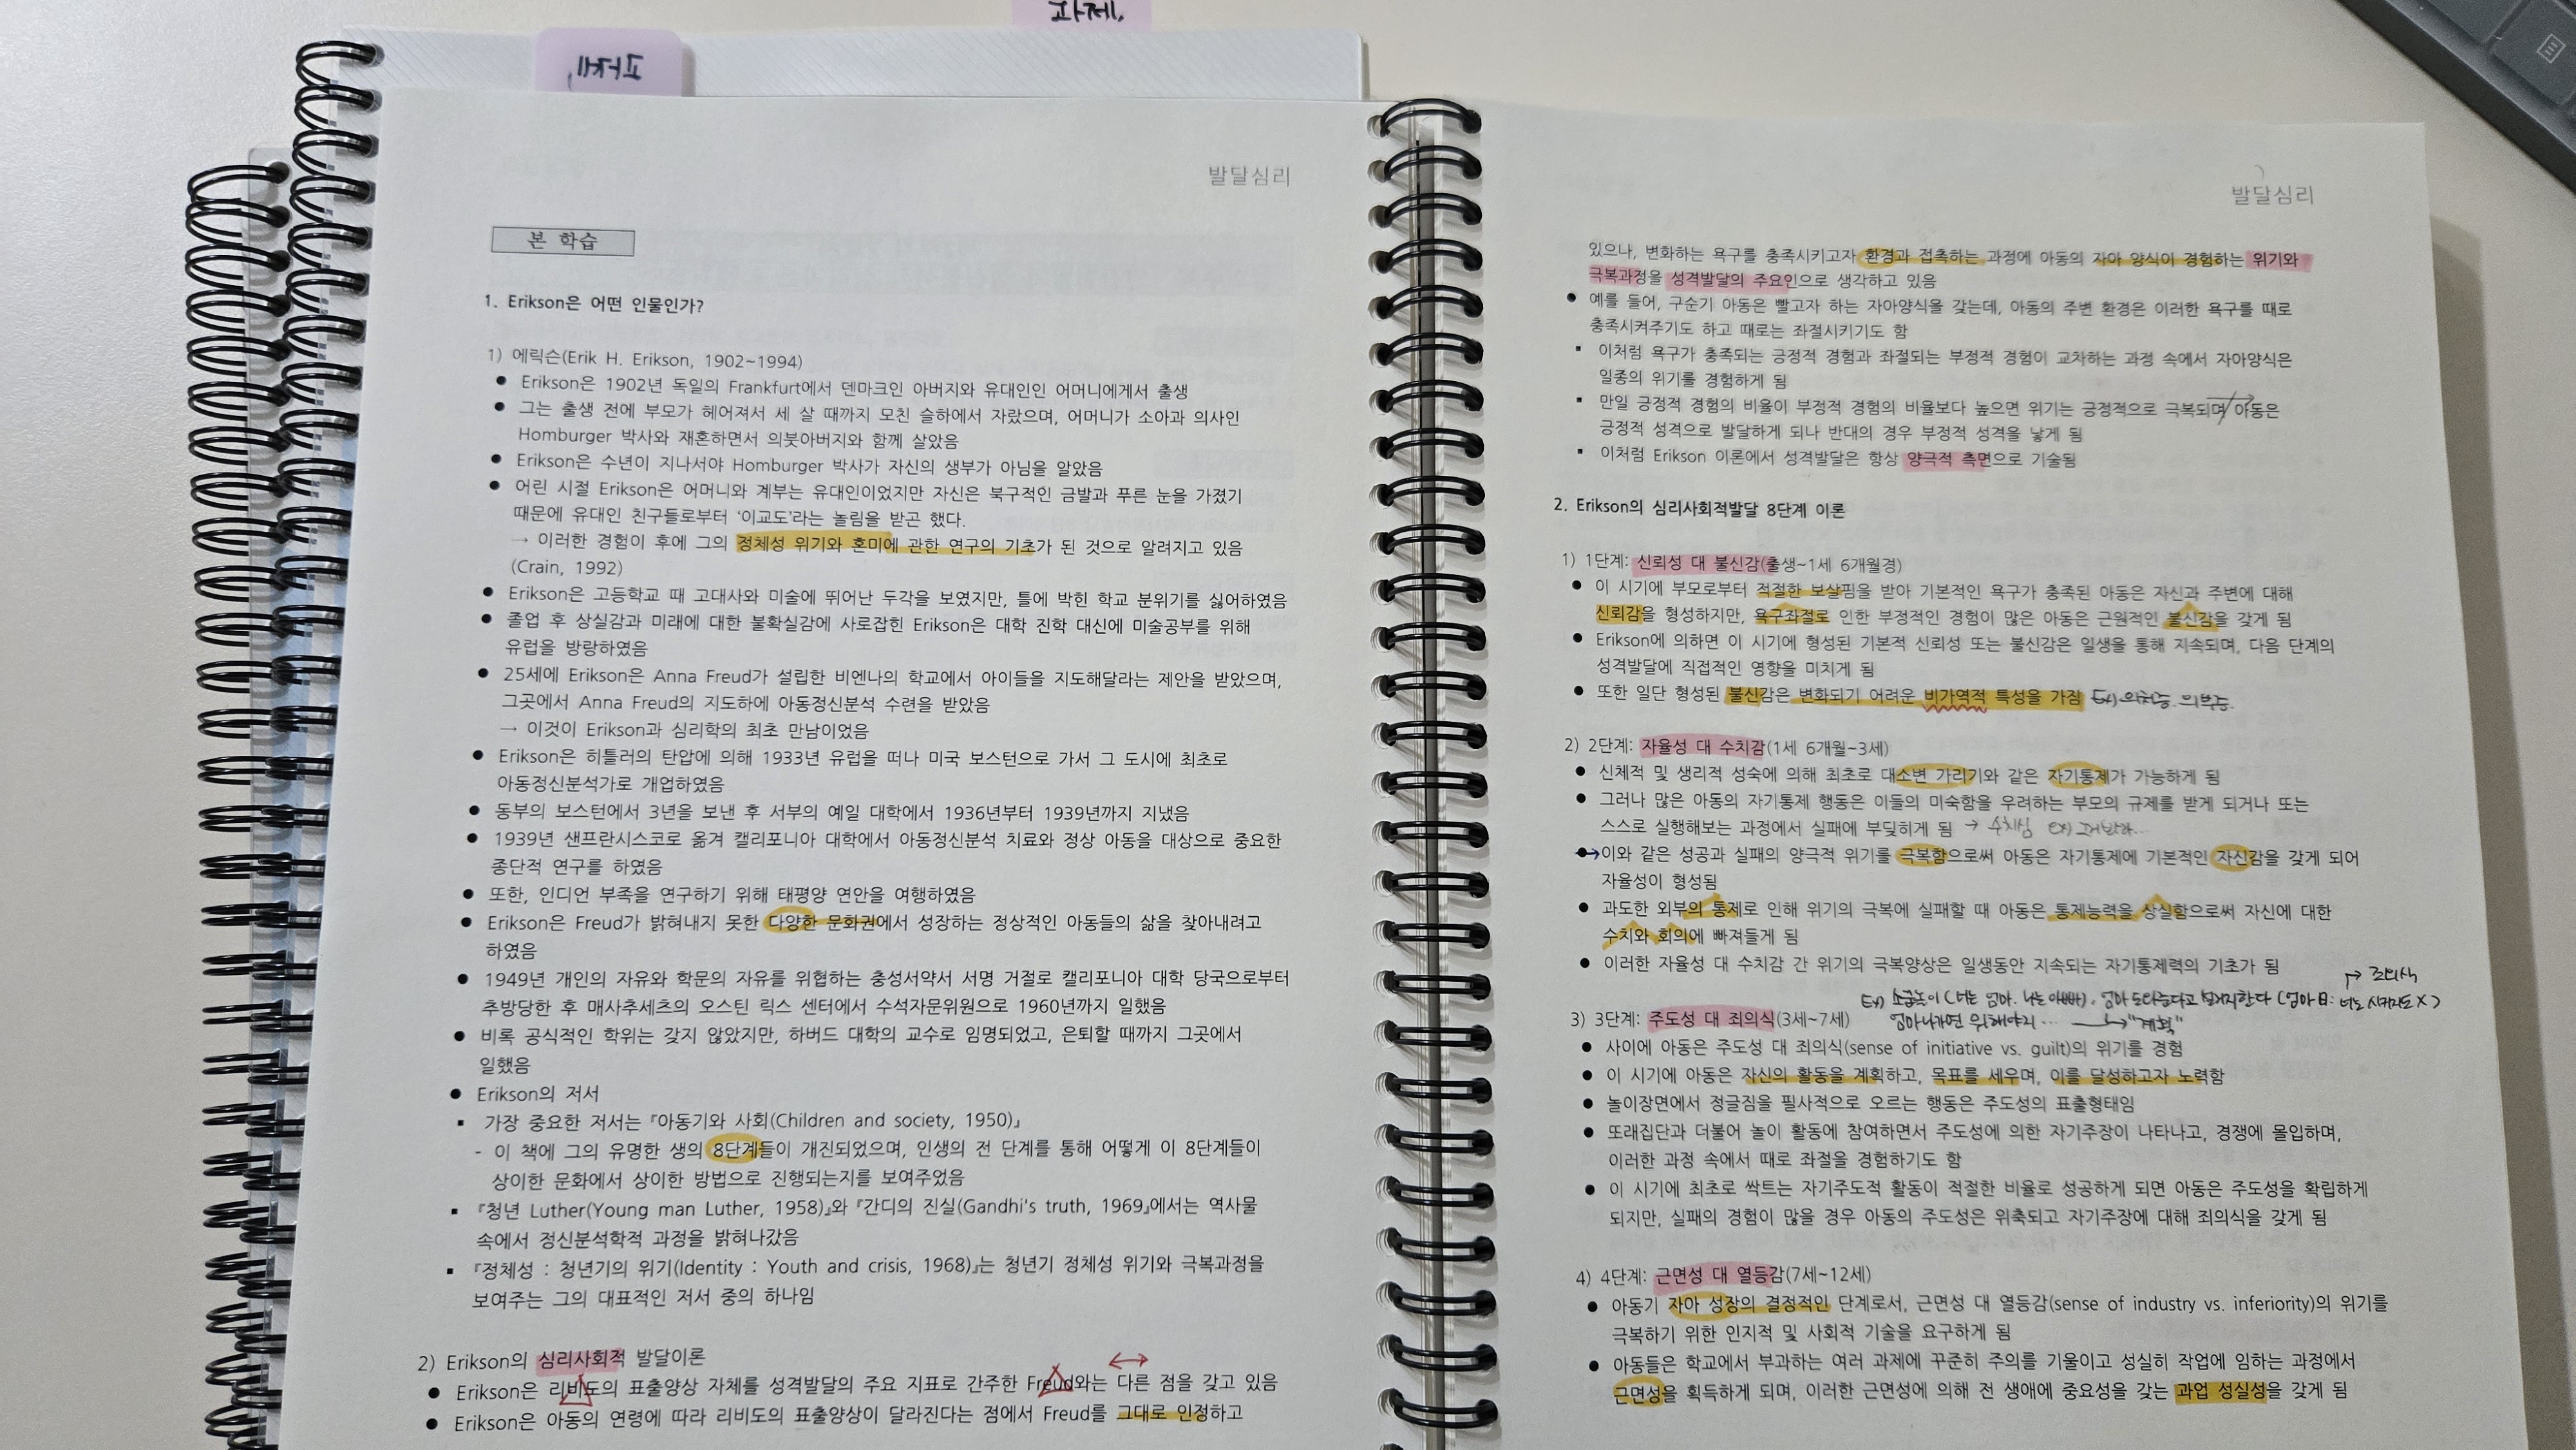 과제.
과제.
발달심리
본 학습
1. Erikson은 어떤 인물인가?
1) 에릭슨(Erik H. Erikson, 1902~1994)
● Erikson은 1902년 독일의 Frankfurt에서 덴마크인 아버지와 유대인인 어머니에게서 출생
● 그는 출생 전에 부모가 헤어져서 세 살 때까지 모친 슬하에서 자랐으며, 어머니가 소아과 의사인
Homburger 박사와 재혼하면서 의붓아버지와 함께 살았음
● Erikson은 수년이 지나서야 Homburger 박사가 자신의 생부가 아님을 알았음
● 어린 시절 Erikson은 어머니와 계부는 유대인이었지만 자신은 북구적인 금발과 푸른 눈을 가졌기
때문에 유대인 친구들로부터 '이교도'라는 놀림을 받곤 했다.
→ 이러한 경험이 후에 그의 정체성 위기와 혼미에 관한 연구의 기초가 된 것으로 알려지고 있음
(Crain, 1992)
● Erikson은 고등학교 때 고대사와 미술에 뛰어난 두각을 보였지만, 틀에 박힌 학교 분위기를 싫어하였음
● 졸업 후 상실감과 미래에 대한 불확실감에 사로잡힌 Erikson은 대학 진학 대신에 미술공부를 위해
유럽을 방랑하였음
● 25세에 Erikson은 Anna Freud가 설립한 비엔나의 학교에서 아이들을 지도해달라는 제안을 받았으며,
그곳에서 Anna Freud의 지도하에 아동정신분석 수련을 받았음
→ 이것이 Erikson과 심리학의 최초 만남이었음
● Erikson은 히틀러의 탄압에 의해 1933년 유럽을 떠나 미국 보스턴으로 가서 그 도시에 최초로
아동정신분석가로 개업하였음
● 동부의 보스턴에서 3년을 보낸 후 서부의 예일 대학에서 1936년부터 1939년까지 지냈음
● 1939년 샌프란시스코로 옮겨 캘리포니아 대학에서 아동정신분석 치료와 정상 아동을 대상으로 중요한
종단적 연구를 하였음
● 또한, 인디언 부족을 연구하기 위해 태평양 연안을 여행하였음
● Erikson은 Freud가 밝혀내지 못한 다양한 문화권에서 성장하는 정상적인 아동들의 삶을 찾아내려고
하였음
● 1949년 개인의 자유와 학문의 자유를 위협하는 충성서약서 서명 거절로 캘리포니아 대학 당국으로부터
추방당한 후 매사추세츠의 오스틴 릭스 센터에서 수석자문위원으로 1960년까지 일했음
● 비록 공식적인 학위는 갖지 않았지만, 하버드 대학의 교수로 임명되었고, 은퇴할 때까지 그곳에서
일했음
● Erikson의 저서
▪ 가장 중요한 저서는 『아동기와 사회(Children and society, 1950)』
- 이 책에 그의 유명한 생의 8단계들이 개진되었으며, 인생의 전 단계를 통해 어떻게 이 8단계들이
상이한 문화에서 상이한 방법으로 진행되는지를 보여주었음
▪ 『청년 Luther(Young man Luther, 1958)』와 『간디의 진실(Gandhi's truth, 1969』에서는 역사물
속에서 정신분석학적 과정을 밝혀나갔음
▪ 『정체성 : 청년기의 위기(Identity : Youth and crisis, 1968)』는 청년기 정체성 위기와 극복과정을
보여주는 그의 대표적인 저서 중의 하나임
2) Erikson의 심리사회적 발달이론
● Erikson은 리비도의 표출양상 자체를 성격발달의 주요 지표로 간주한 Freud와는 다른 점을 갖고 있음
● Erikson은 아동의 연령에 따라 리비도의 표출양상이 달라진다는 점에서 Freud를 그대로 인정하고
발달심리
있으나, 변화하는 욕구를 충족시키고자 환경과 접촉하는 과정에 아동의 자아 양식이 경험하는 위기와
극복과정을 성격발달의 주요인으로 생각하고 있음
● 예를 들어, 구순기 아동은 빨고자 하는 자아양식을 갖는데, 아동의 주변 환경은 이러한 욕구를 때로
충족시켜주기도 하고 때로는 좌절시키기도 함
▪ 이처럼 욕구가 충족되는 긍정적 경험과 좌절되는 부정적 경험이 교차하는 과정 속에서 자아양식은
일종의 위기를 경험하게 됨
▪ 만일 긍정적 경험의 비율이 부정적 경험의 비율보다 높으면 위기는 긍정적으로 극복되며 아동은
긍정적 성격으로 발달하게 되나 반대의 경우 부정적 성격을 낳게 됨
▪ 이처럼 Erikson 이론에서 성격발달은 항상 양극적 측면으로 기술됨
2. Erikson의 심리사회적발달 8단계 이론
1) 1단계: 신뢰성 대 불신감(출생~1세 6개월경)
● 이 시기에 부모로부터 적절한 보살핌을 받아 기본적인 욕구가 충족된 아동은 자신과 주변에 대해
신뢰감을 형성하지만, 욕구좌절로 인한 부정적인 경험이 많은 아동은 근원적인 불신감을 갖게 됨
● Erikson에 의하면 이 시기에 형성된 기본적 신뢰성 또는 불신감은 일생을 통해 지속되며, 다음 단계의
성격발달에 직접적인 영향을 미치게 됨
● 또한 일단 형성된 불신감은 변화되기 어려운 비가역적 특성을 가짐 Ex) 의처증. 의부증.
2) 2단계: 자율성 대 수치감(1세 6개월~3세)
● 신체적 및 생리적 성숙에 의해 최초로 대소변 가리기와 같은 자기통제가 가능하게 됨
● 그러나 많은 아동의 자기통제 행동은 이들의 미숙함을 우려하는 부모의 규제를 받게 되거나 또는
스스로 실행해보는 과정에서 실패에 부딪히게 됨 → 수치심 ex)
● 이와 같은 성공과 실패의 양극적 위기를 극복함으로써 아동은 자기통제에 기본적인 자신감을 갖게 되어
자율성이 형성됨
● 과도한 외부의 통제로 인해 위기의 극복에 실패할 때 아동은 통제능력을 상실함으로써 자신에 대한
수치와 회의에 빠져들게 됨
● 이러한 자율성 대 수치감 간 위기의 극복양상은 일생동안 지속되는 자기통제력의 기초가 됨
→ 죄의식
Ex) 소꿉놀이 (너는 엄마. 나는 아빠), 엄마 도와준다고 설거지한다 (엄마 曰: 너는 시키지도 X)
3) 3단계: 주도성 대 죄의식(3세~7세) 엄마나가면 뭐해야지 ... → "계획"
● 사이에 아동은 주도성 대 죄의식(sense of initiative vs. guilt)의 위기를 경험
● 이 시기에 아동은 자신의 활동을 계획하고, 목표를 세우며, 이를 달성하고자 노력함
● 놀이장면에서 정글짐을 필사적으로 오르는 행동은 주도성의 표출형태임
● 또래집단과 더불어 놀이 활동에 참여하면서 주도성에 의한 자기주장이 나타나고, 경쟁에 몰입하며,
이러한 과정 속에서 때로 좌절을 경험하기도 함
● 이 시기에 최초로 싹트는 자기주도적 활동이 적절한 비율로 성공하게 되면 아동은 주도성을 확립하게
되지만, 실패의 경험이 많을 경우 아동의 주도성은 위축되고 자기주장에 대해 죄의식을 갖게 됨
4) 4단계: 근면성 대 열등감(7세~12세)
● 아동기 자아 성장의 결정적인 단계로서, 근면성 대 열등감(sense of industry vs. inferiority)의 위기를
극복하기 위한 인지적 및 사회적 기술을 요구하게 됨
● 아동들은 학교에서 부과하는 여러 과제에 꾸준히 주의를 기울이고 성실히 작업에 임하는 과정에서
근면성을 획득하게 되며, 이러한 근면성에 의해 전 생애에 중요성을 갖는 과업 성실성을 갖게 됨